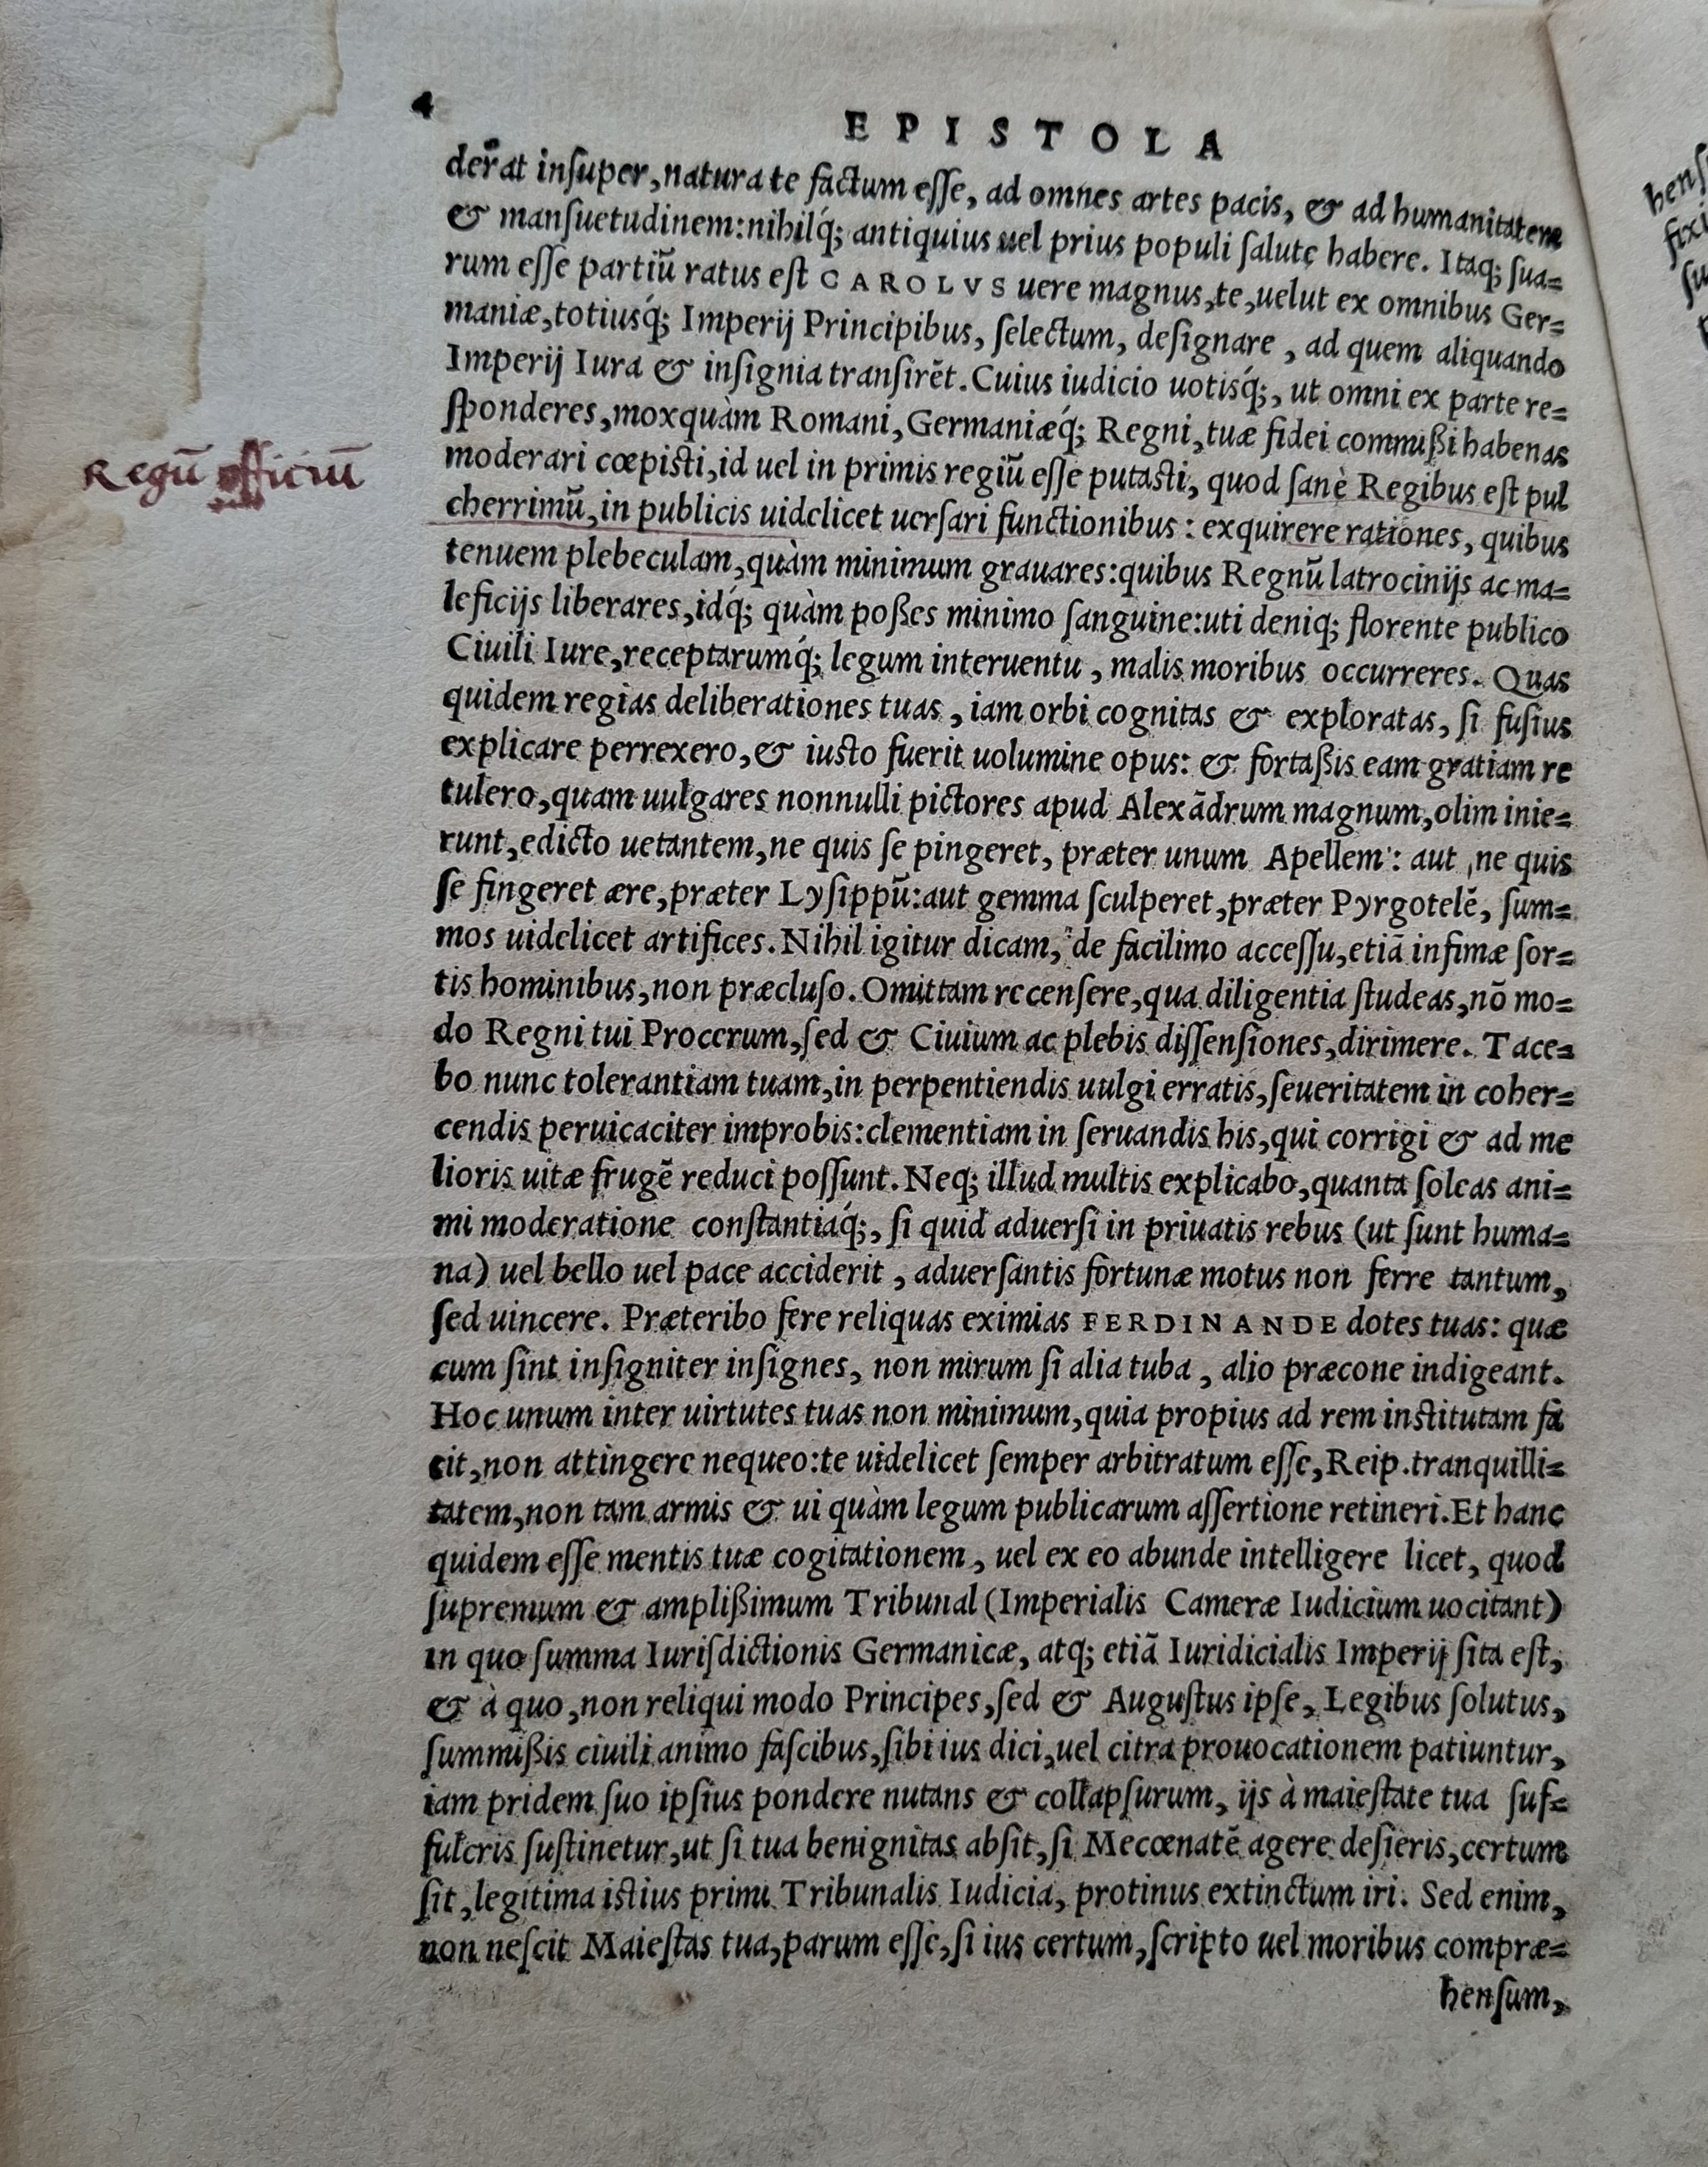 4
EPISTOLA
derat inſuper, natura te factum eſſe, ad omnes artes pacis, & ad humanitatem
& manſuetudinem: nihilq́; antiquius uel prius populi ſalute habere. Itaq; ſua=
rum eſſe partiū ratus eſt CAROLVS uere magnus, te, uelut ex omnibus Ger=
maniæ, totiusq́; Imperij Principibus, ſelectum, deſignare, ad quem aliquando
Imperij Iura & inſignia tranſirēt. Cuius iudicio uotisq́;, ut omni ex parte re=
ſponderes, moxquàm Romani, Germaniæq́; Regni, tuæ fidei commißi habenas
moderari cœpisti, id uel in primis regiū eſſe putasti, quod ſanè Regibus eſt pul
Regū officiū
cherrimū, in publicis uidelicet uerſari functionibus: exquirere rationes, quibus
tenuem plebeculam, quàm minimum grauares: quibus Regnū latrocinijs ac ma=
leficijs liberares, idq́; quàm poßes minimo ſanguine: uti deniq; florente publico
Ciuili Iure, receptarumq́; legum interuentu, malis moribus occurreres. Quas
quidem regias deliberationes tuas, iam orbi cognitas & exploratas, ſi fuſius
explicare perrexero, & iusto fuerit uolumine opus: & fortaßis eam gratiam re
tulero, quam uulgares nonnulli pictores apud Alexādrum magnum, olim inie=
runt, edicto uetantem, ne quis ſe pingeret, præter unum Apellem: aut ne quis
ſe fingeret ære, præter Lyſippū: aut gemma ſculperet, præter Pyrgotelē, ſum=
mos uidelicet artifices. Nihil igitur dicam, de facilimo acceſſu, etiā infimæ ſor=
tis hominibus, non præcluſo. Omittam recenſere, qua diligentia ſtudeas, nō mo=
do Regni tui Procerum, ſed & Ciuium ac plebis diſſenſiones, dirimere. Tace=
bo nunc tolerantiam tuam, in perpentiendis uulgi erratis, ſeueritatem in coher=
cendis peruicaciter improbis: clementiam in ſeruandis his, qui corrigi & ad me
lioris uitæ frugē reduci poſſunt. Neq; illud multis explicabo, quanta ſoleas ani=
mi moderatione constantiaq́;, ſi quid aduerſi in priuatis rebus (ut ſunt huma=
na) uel bello uel pace acciderit, aduerſantis fortunæ motus non ferre tantum,
ſed uincere. Præteribo fere reliquas eximias FERDINANDE dotes tuas: quæ
cum ſint inſigniter inſignes, non mirum ſi alia tuba, alio præcone indigeant.
Hoc unum inter uirtutes tuas non minimum, quia propius ad rem institutam fa
cit, non attingere nequeo: te uidelicet ſemper arbitratum eſſe, Reip. tranquilli=
tatem, non tam armis & ui quàm legum publicarum aſſertione retineri. Et hanc
quidem eſſe mentis tuæ cogitationem, uel ex eo abunde intelligere licet, quod
ſupremum & amplißimum Tribunal (Imperialis Cameræ Iudicium uocitant)
in quo ſumma Iuriſdictionis Germanicæ, atq; etiā Iuridicialis Imperij ſita eſt,
& à quo, non reliqui modo Principes, ſed & Auguſtus ipſe, Legibus ſolutus,
ſummißis ciuili animo faſcibus, ſibi ius dici, uel citra prouocationem patiuntur,
iam pridem ſuo ipſius pondere nutans & collapſurum, ijs à maieſtate tua ſuf=
fulcris ſuſtinetur, ut ſi tua benignitas abſit, ſi Mecœnatē agere deſieris, certum
ſit, legitima istius primi Tribunalis Iudicia, protinus extinctum iri. Sed enim,
non neſcit Maieſtas tua, parum eſſe, ſi ius certum, ſcripto uel moribus compræ=
henſum,